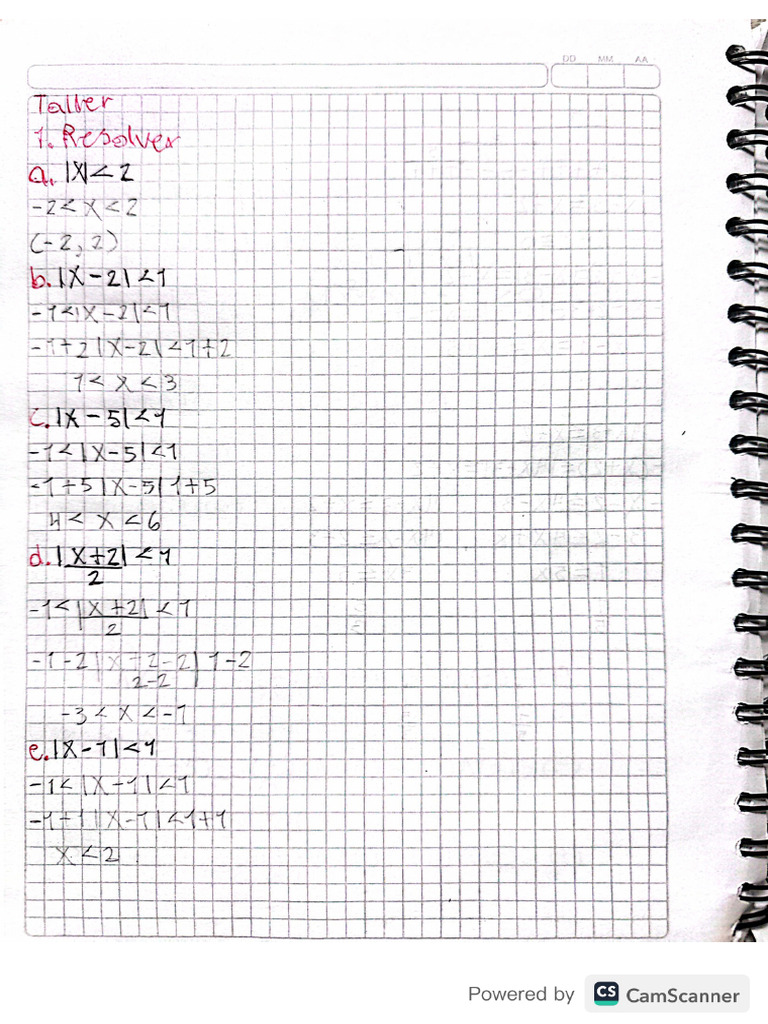 DD MM AA
Taller
1. Resolver
a. |X| < 2
-2 < X < 2
(-2, 2)
b. |X - 2| < 1
-1 < |X - 2| < 1
-1 + 2 |X - 2| < 1 + 2
1 < X < 3
c. |X - 5| < 1
-1 < |X - 5| < 1
-1 + 5 |X - 5| 1 + 5
4 < X < 6
d. |X + 2| < 1
2
-1 < |X + 2| < 1
2
-1 - 2 |X - 2 - 2| 1 - 2
2 - 2
-3 < X < -1
e. |X - 1| < 1
-1 < |X - 1| < 1
-1 + 1 |X - 1| < 1 + 1
X < 2
Powered by CS CamScanner